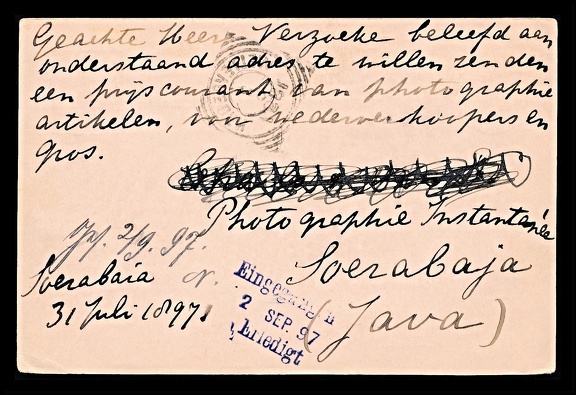 Geachte Heer, Verzoeke beleefd aan
onderstaand adres te willen zenden
een prijscourant van photographie
artikelen, voor wederverkoopers en
gros.
Photographie Instantanée
Soerabaja
(Java)
2/9. 97.
Soerabaia
31 Juli 1897.
Eingegangen
2 SEP. 97
Erledigt